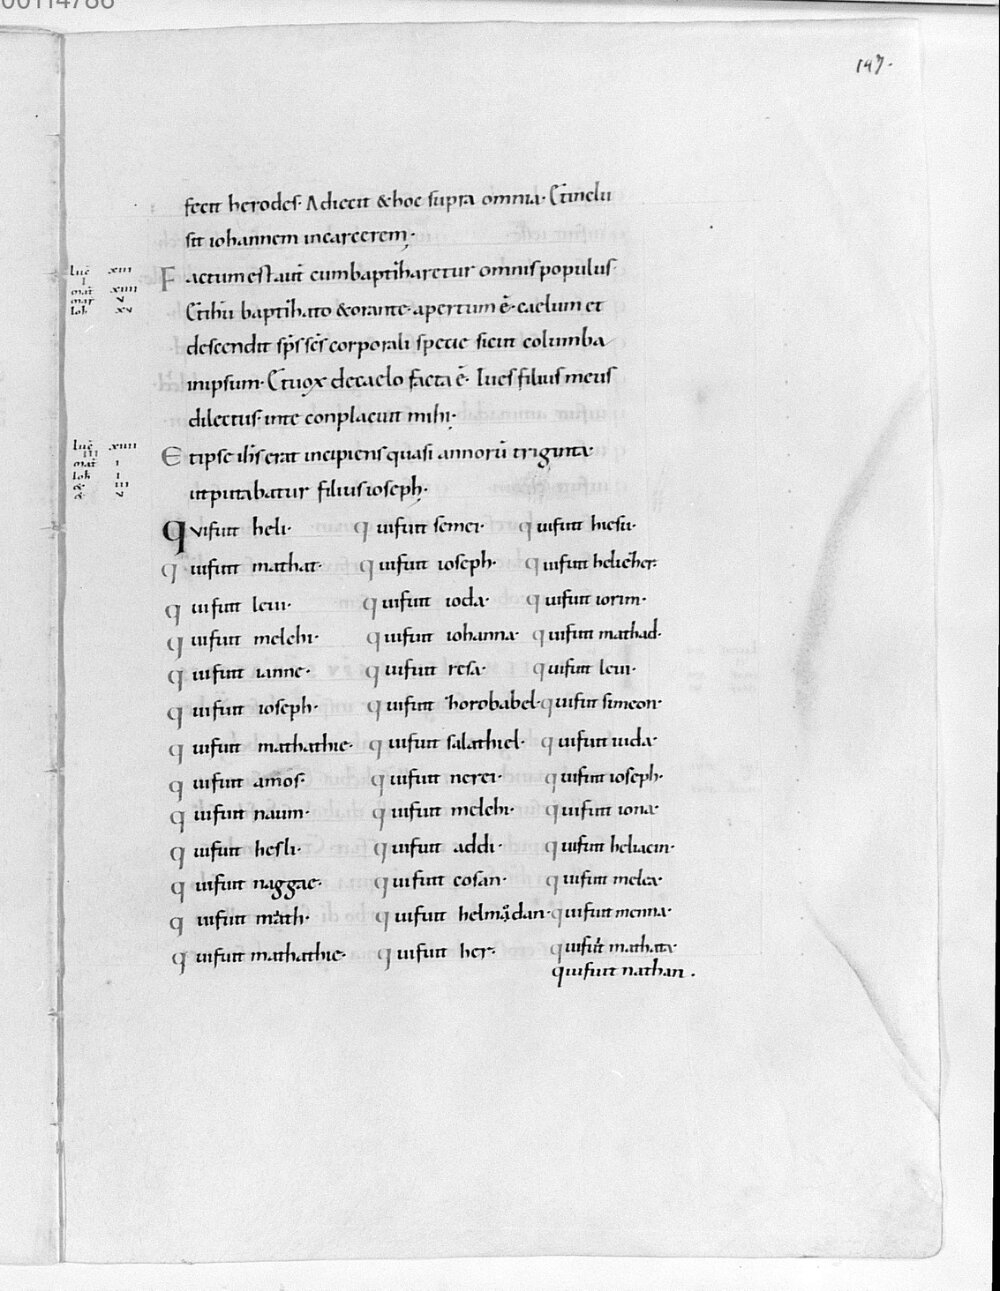 00114786
147.
fecit herodes· Adiecit & hoc supra omnia· Et inclu
sit iohannem in carcerem·
Luc xiii
i
mat xiiii
mar v
Ioh xv
Factum est aut̄ cum baptizaretur omnis populus·
Et ih̄u baptizato & orante· apertum ē· caelum et
descendit sp̄s sc̄s corporali specie sicut columba
in ipsum· Et uox de caelo facta ē· Tu es filius meus
dilectus· in te conplacuit mihi·
Luc xiiii
iii
mat i
Ioh i
& iii
& v
Et ipse ih̄s erat incipiens quasi annorū triginta
ut putabatur filius ioseph·
Qui fuit heli· qui fuit semei· qui fuit hiesu·
qui fuit mathat· qui fuit ioseph· qui fuit heliezer·
qui fuit leui· qui fuit ioda· qui fuit iorim·
qui fuit melchi· qui fuit iohanna· qui fuit mathad·
qui fuit ianne· qui fuit resa· qui fuit leui·
qui fuit ioseph· qui fuit zorobabel· qui fuit simeon·
qui fuit mathathie· qui fuit salathiel· qui fuit iuda·
qui fuit amos· qui fuit nerei· qui fuit ioseph·
qui fuit naum· qui fuit melchi· qui fuit iona·
qui fuit hesli· qui fuit addi· qui fuit heliacin·
qui fuit naggae· qui fuit cosan· qui fuit melea·
qui fuit math· qui fuit helmadan· qui fuit menna·
qui fuit mathathie· qui fuit her· qui fuit mathata·
qui fuit nathan.